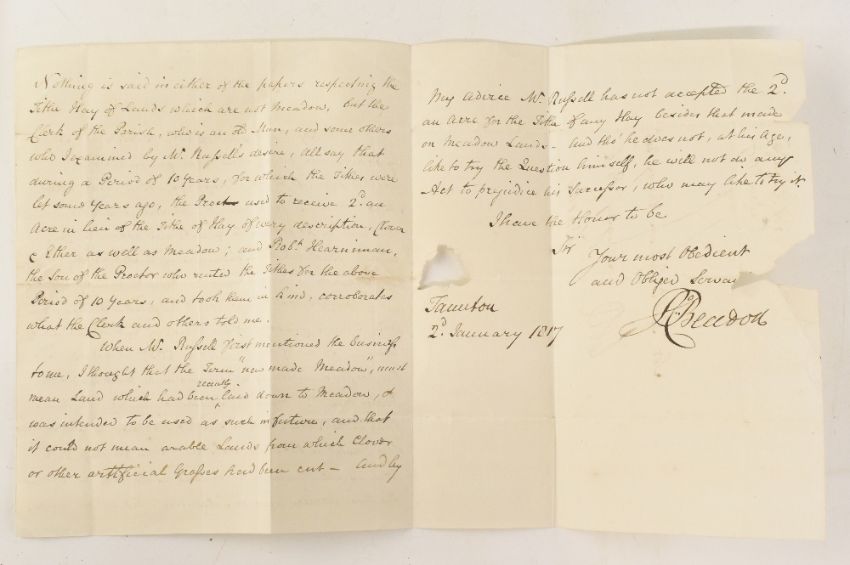 Nothing is said in either of the papers respecting the
Tithe Hay of Lands which are not Meadow, but the
Clerk of the Parish, who is an old Man, and some others
who I examined by Mr. Russell's desire, all say that
during a Period of 10 Years, for which the Tithes were
let some years ago, the Proctor used to receive 2d. an
Acre in lieu of the Tithe of Hay of every description, Clover
& Ether as well as Meadow; and Robt. Hearniman,
the Son of the Proctor who rented the Tithes for the above
Period of 10 Years, and took them in kind, corroborates
what the Clerk and others told me.
When Mr. Russell first mentioned the business
to me, I thought that the Term "new made Meadow", must
mean Land which had been recently laid down to Meadow, &
was intended to be used as such in future, and that
it could not mean arable Lands from which Clover
or other artificial Grasses had been cut – And by
my advice Mr. Russell has not accepted the 2d.
an Acre for the Tithe of any Hay besides that made
on Meadow Lands – And tho' he does not, at his Age,
like to try the Question himself, he will not do any
Act to prejudice his Successor, who may like to try it.
I have the Honor to be
Sir
Your most Obedient
and Obliged Serva
Taunton
2d. January 1817